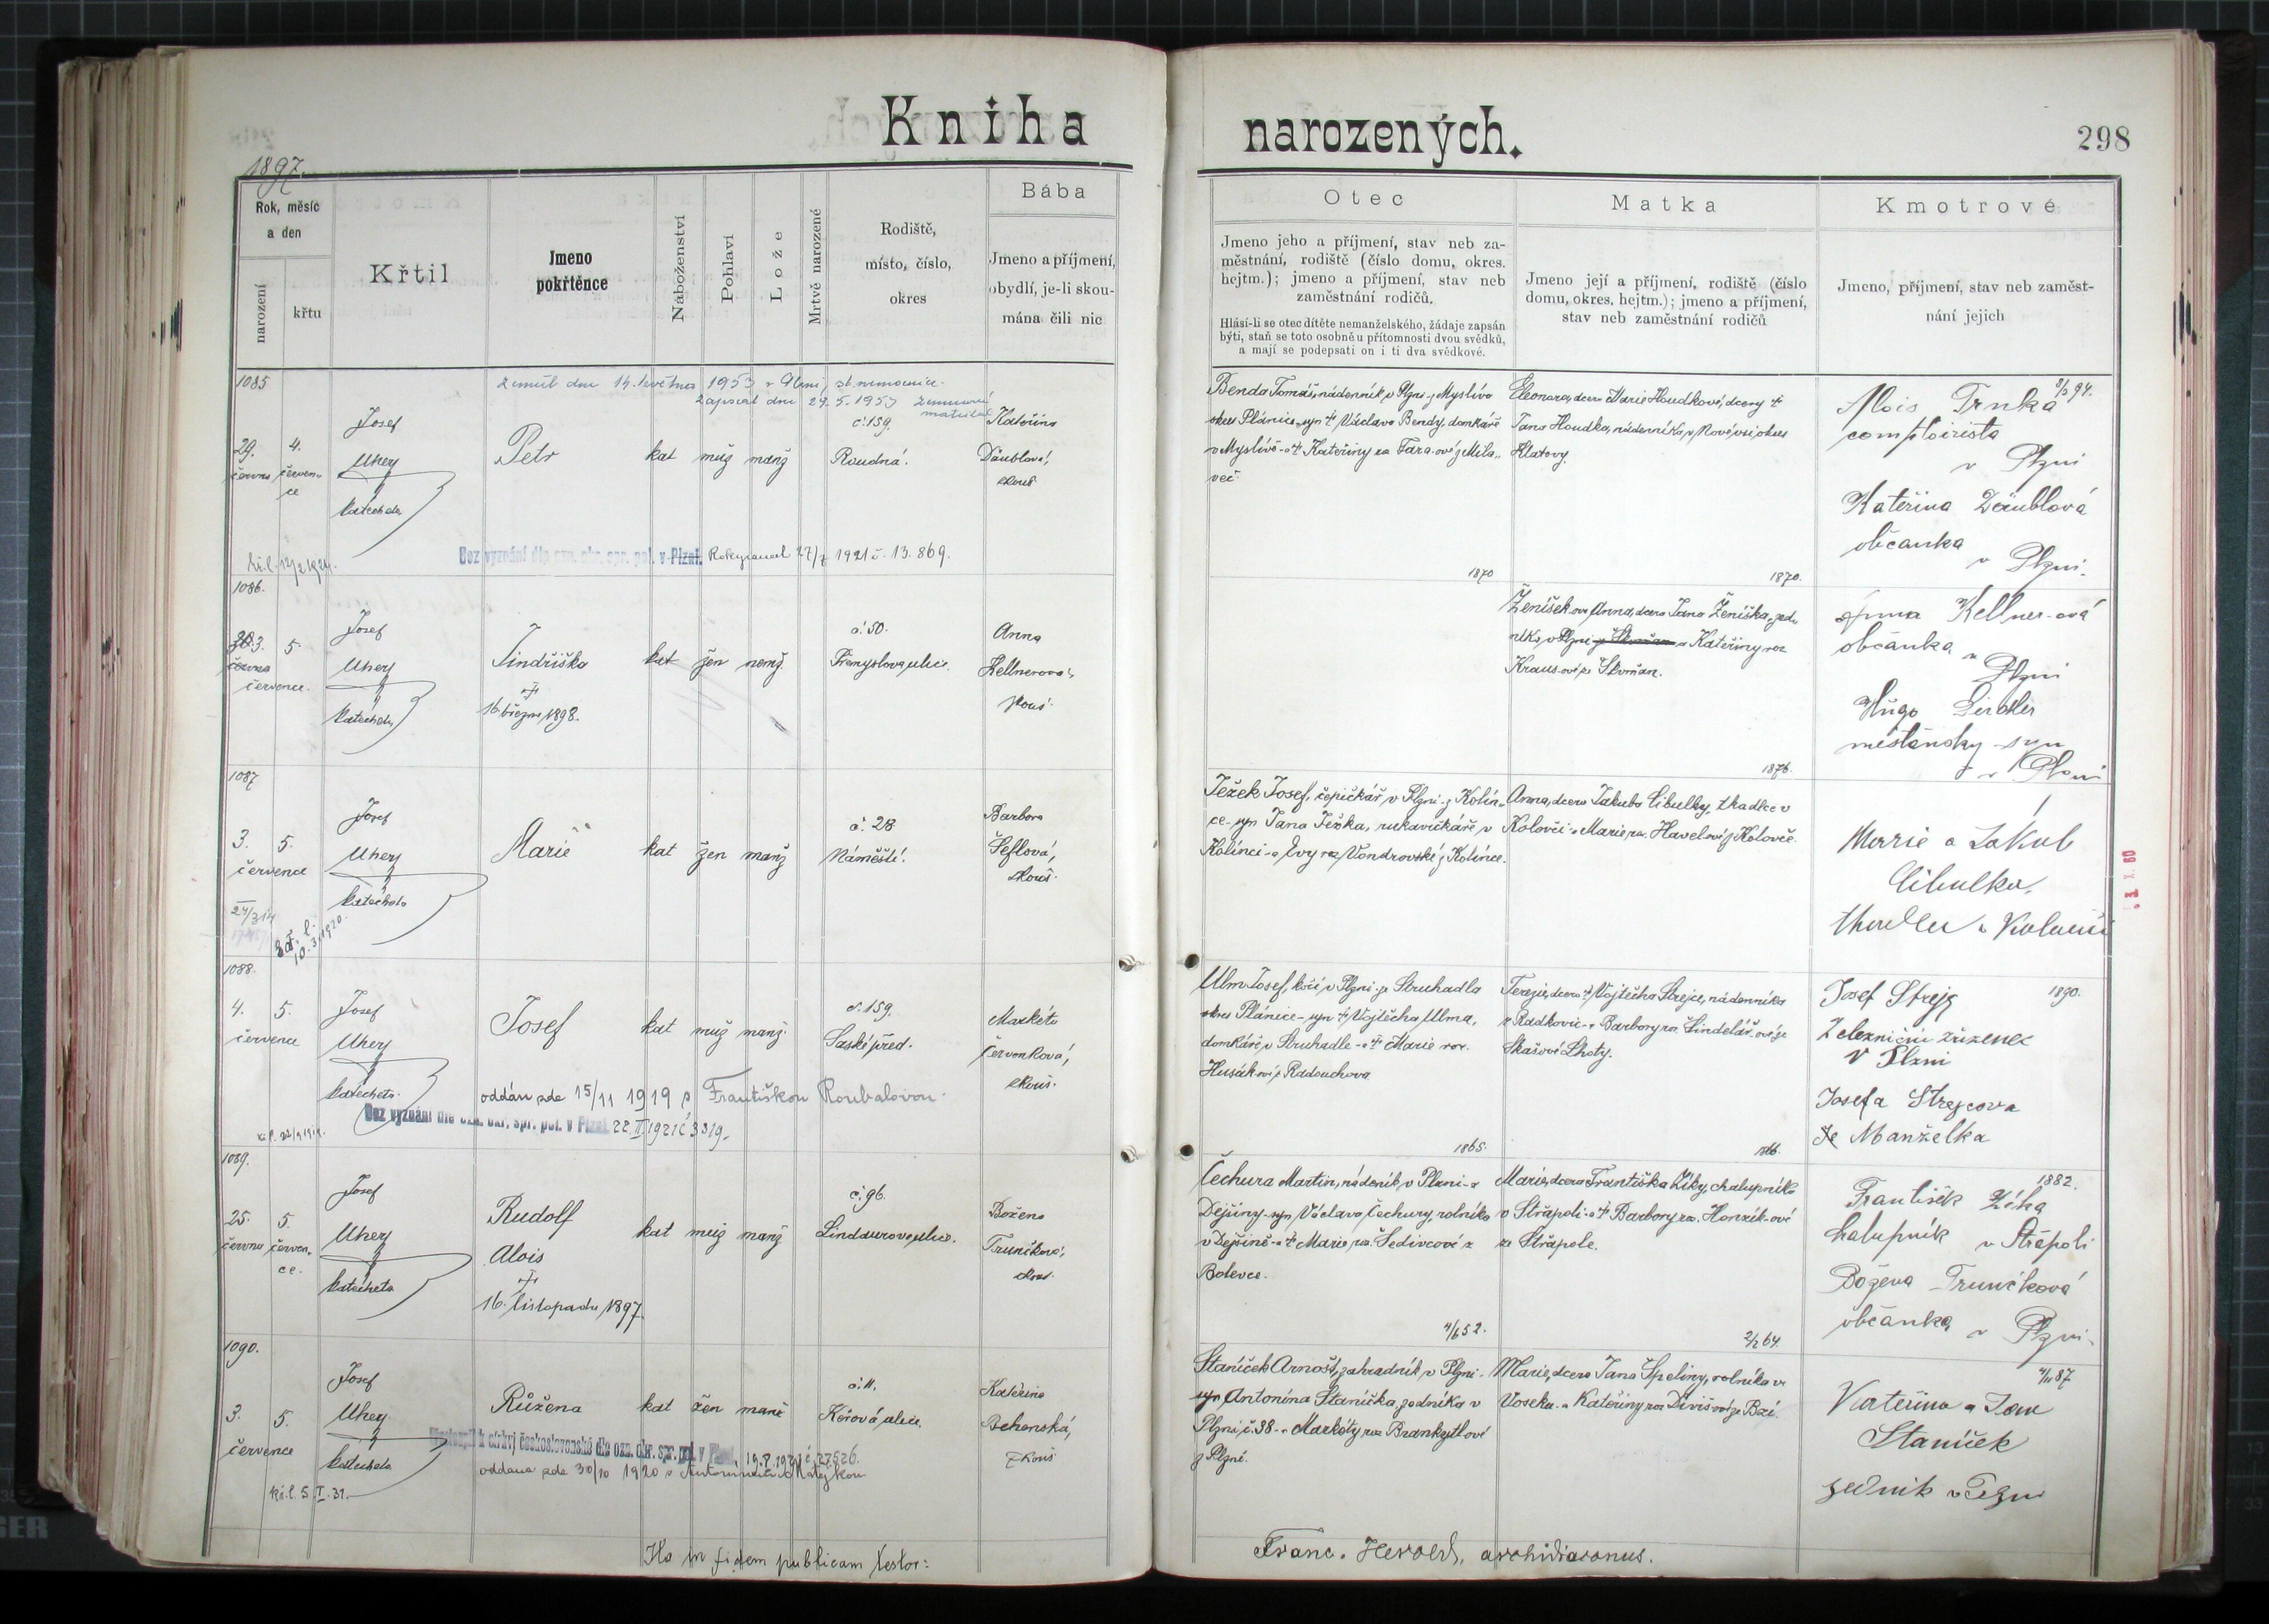 Kniha narozených.
298
1897.
Rok, měsíc
a den
narození
křtu
Křtil
Jmeno
pokřtěnce
Náboženství
Pohlaví
Lože
Mrtvě narozené
Rodiště,
místo, číslo,
okres
Bába
Jmeno a příjmení,
obydlí, je-li skou-
mána čili nic
Otec
Jmeno jeho a příjmení, stav neb za-
městnání, rodiště (číslo domu, okres.
hejtm.); jmeno a příjmení, stav neb
zaměstnání rodičů.
Hlásí-li se otec dítěte nemanželského, žádaje zapsán
býti, staň se toto osobně u přítomnosti dvou svědků,
a mají se podepsati on i ti dva svědkové.
Matka
Jmeno její a příjmení, rodiště (číslo
domu, okres. hejtm.); jmeno a příjmení,
stav neb zaměstnání rodičů
Kmotrové
Jmeno, příjmení, stav neb zaměst-
nání jejich
1085
zemřel dne 14. května 1953 v Plzni, st. nemocnice.
zapsal dne 29.5.1953
29.
června
4.
červen-
ce
Josef
Uhery
katecheta
Petr
kat muž manž
č. 159.
Roudná.
Kateřina
Däublová,
zkouš
Bez vyznání dle ozn. okr. spr. pol. v Plzni. Rokycanech 27/7 1921 č. 13.869.
Benda Tomáš, nádenník v Plzni z Myslívа
okres Plánice, syn † Václava Bendy, domkáře
v Myslívě a † Kateřiny roz. Fara-ové z Mila-
več.
Eleonora, dcera Marie Houdkové, dcery †
Jana Houdka, nádenníka v Nové vsi okres
Klatovy.
Alois Trnka
comptoirista
v Plzni
Kateřina Däublová
občanka
v Plzni.
1086.
1870
1870.
3.
července.
5.
Josef
Uhery
katecheta
Jindřiška
†
16. března 1898.
kat žen nemž.
č. 50.
Přemyslova ulice.
Anna
Kellnerová,
zkouš.
Ženíšek-ova Anna, dcera Jana Ženíška, zed-
níka v Plzni a Kateřiny roz
Kraus-ové ze Skvrňan.
Anna Kellner-ová
občanka v
Plzni
Hugo
měšťanský syn
v Plzni
1087
1876.
3.
července
5.
Josef
Uhery
katecheta
10.3.1920.
Marie
kat žen manž
č. 28
Náměstí.
Barbora
Šeflová,
zkouš.
Ježek Josef, čepičkář v Plzni z Kolín-
ce, syn Jana Ježka, rukavičkáře v
Kolinci a Evy roz Vondrovské z Kolince.
Anna, dcera Jakuba Cibulky, tkadlce v
Kolovči a Marie roz. Havel-ové z Kolovče.
Marie a Jakub
Cibulka,
1088.
4.
července
5.
Josef
Uhery
katecheta.
Josef
kat muž manž.
č. 159.
Saské před.
Markéta
Červenková,
zkouš.
oddán zde 15/11 1919 s Františkou Roubalovou.
Bez vyznání dle ozn. okr. spr. pol. v Plzni. 22.II.1921 č 3319.
Ulm Josef, kočí v Plzni ze Struhadla
okres Plánice, syn † Vojtěcha Ulma,
domkáře v Struhadle a † Marie roz.
Husák-ové z Radochova
Terezie, dcera † Vojtěcha Strejce, nádenníka
z Radkovic a Barbory roz. Šindelář-ové ze
Skašové Lhoty.
Josef Strejc
1890.
Železniční zřízenec
v Plzni
Josefa Strejcova
Je Manželka
1089.
1865.
1866.
25.
června
5.
červen-
ce.
Josef
Uhery
katecheta
Rudolf
Alois
†
16. listopadu 1897.
kat muž manž
č. 96.
Lindaurova ulice.
Božena
Trunčková,
zkouš.
Čechura Martin, nádeník v Plzni z
Dejšiny, syn Václava Čechury, rolníka
v Dejšině a † Marie roz. Šedivcové z
Bolevce.
Marie, dcera Františka Zíky, chalupníka
v Střapoli a † Barbory roz. Honzík-ové
ze Střapole.
1882.
František Zíka
halupník v Střápoli
Božena Trunčková
občanka v Plzni.
1090.
4/6 52.
2/2 64.
3.
července
5.
Josef
Uhery
katecheta
Růžena
kat žen manž
č. 11.
Korová ulice.
Kateřina
Behenská,
zkouš
Přistoupil k církvi československé dle ozn. okr. spr. pol. v Plzni.
oddána zde 30/10 1920 s Antonínem Matějkou
Staníček Arnošt, zahradník v Plzni,
syn Antonína Staníčka, zedníka v
Plzni č. 38 a Markéty roz Brankytlové
z Plzně.
Marie, dcera Jana Špeliny, rolníka ve
Voseku a Kateřiny roz Diviš-ové ze Bzí.
Kateřina a Jan
Staníček
zedník v Plzni
Ita in fidem publicam testor:
Franc. Herold, archidiaconus.